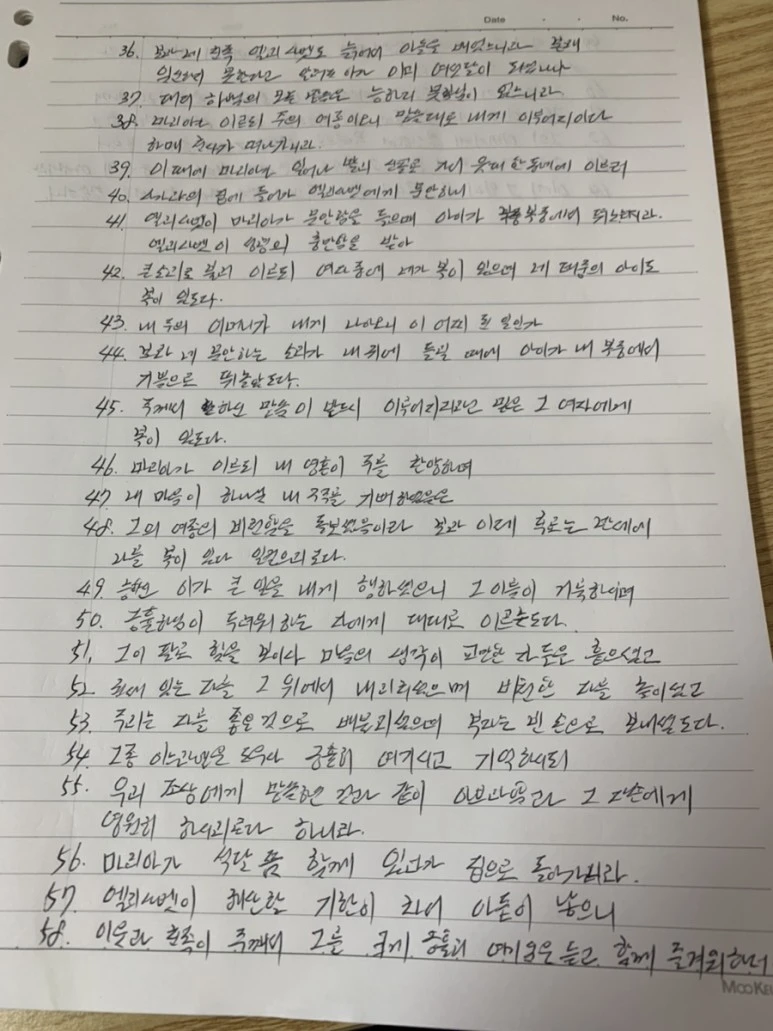 Date . . No.
36. 보라 네 친족 엘리사벳도 늙어서 아들을 배었느니라 본래
임신하지 못한다고 알려진 이가 이미 여섯달이 되었나니
37. 대저 하나님의 모든 말씀은 능하지 못하심이 없느니라
38. 마리아가 이르되 주의 여종이오니 말씀대로 내게 이루어지이다
하매 천사가 떠나가니라.
39. 이 때에 마리아가 일어나 빨리 산골로 가서 유대 한 동네에 이르러
40. 사가랴의 집에 들어가 엘리사벳에게 문안하니
41. 엘리사벳이 마리아가 문안함을 들으매 아이가 복중에서 뛰노는지라.
엘리사벳이 성령의 충만함을 받아
42. 큰 소리로 불러 이르되 여자 중에 네가 복이 있으며 네 태중의 아이도
복이 있도다.
43. 내 주의 어머니가 내게 나아오니 이 어찌 된 일인가
44. 보라 네 문안하는 소리가 내 귀에 들릴 때에 아이가 내 복중에서
기쁨으로 뛰놀았도다.
45. 주께서 하신 말씀이 반드시 이루어지리라고 믿은 그 여자에게
복이 있도다.
46. 마리아가 이르되 내 영혼이 주를 찬양하며
47. 내 마음이 하나님 내 구주를 기뻐하였음은
48. 그의 여종의 비천함을 돌보셨음이라 보라 이제 후로는 만세에
나를 복이 있다 일컬으리로다.
49. 능하신 이가 큰 일을 내게 행하셨으니 그 이름이 거룩하시며
50. 긍휼하심이 두려워하는 자에게 대대로 이르는도다.
51. 그의 팔로 힘을 보이사 마음의 생각이 교만한 자들을 흩으셨고
52. 권세 있는 자를 그 위에서 내리치셨으며 비천한 자를 높이셨고
53. 주리는 자를 좋은 것으로 배불리셨으며 부자는 빈 손으로 보내셨도다.
54. 그 종 이스라엘을 도우사 긍휼히 여기시고 기억하시되
55. 우리 조상에게 말씀하신 것과 같이 아브라함과 그 자손에게
영원히 하시리로다 하니라.
56. 마리아가 석달 쯤 함께 있다가 집으로 돌아가니라.
57. 엘리사벳이 해산할 기한이 차서 아들이 낳으니
58. 이웃과 친족이 주께서 그를 크게 긍휼히 여기심을 듣고 함께 즐거워하더